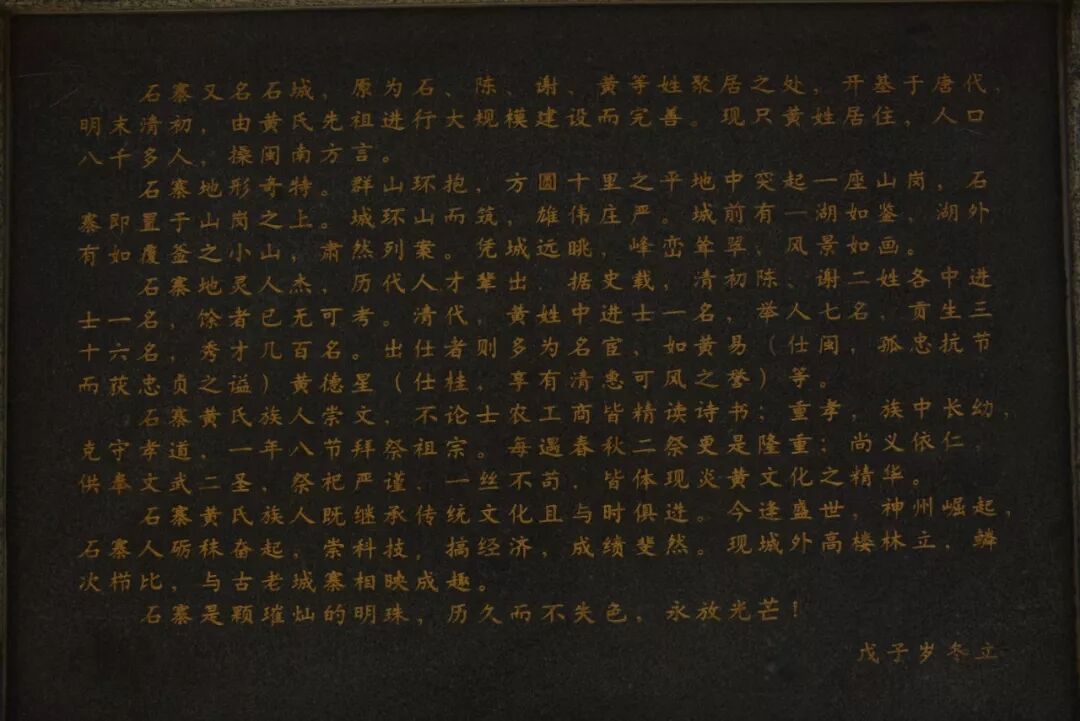 石寨又名石城，原为石、陈、谢、黄等姓聚居之处，开基于唐代，
明末清初，由黄氏先祖进行大规模建设而完善。现只黄姓居住，人口
八千多人，操闽南方言。
石寨地形奇特。群山环抱，方圆十里之平地中突起一座山岗，石
寨即置于山岗之上。城环山而筑，雄伟庄严。城前有一湖如鉴，湖外
有如覆釜之小山，肃然列案。凭城远眺，峰峦耸翠，风景如画。
石寨地灵人杰，历代人才辈出。据史载，清初陈、谢二姓各中进
士一名，馀者已无可考。清代，黄姓中进士一名，举人七名，贡生三
十六名，秀才几百名。出仕者则多为名宦，如黄易（仕闽，孤忠抗节
而获忠贞之谥）黄德星（仕桂，享有清惠可风之誉）等。
石寨黄氏族人崇文，不论士农工商皆精读诗书；重孝，族中长幼，
克守孝道，一年八节拜祭祖宗。每遇春秋二祭更是隆重；尚义依仁，
供奉文武二圣，祭祀严谨，一丝不苟，皆体现炎黄文化之精华。
石寨黄氏族人既继承传统文化且与时俱进。今逢盛世，神州崛起，
石寨人砺秣奋起，崇科技，搞经济，成绩斐然。现城外高楼林立，鳞
次栉比，与古老城寨相映成趣。
石寨是颗璀灿的明珠，历久而不失色，永放光芒！
戊子岁冬立